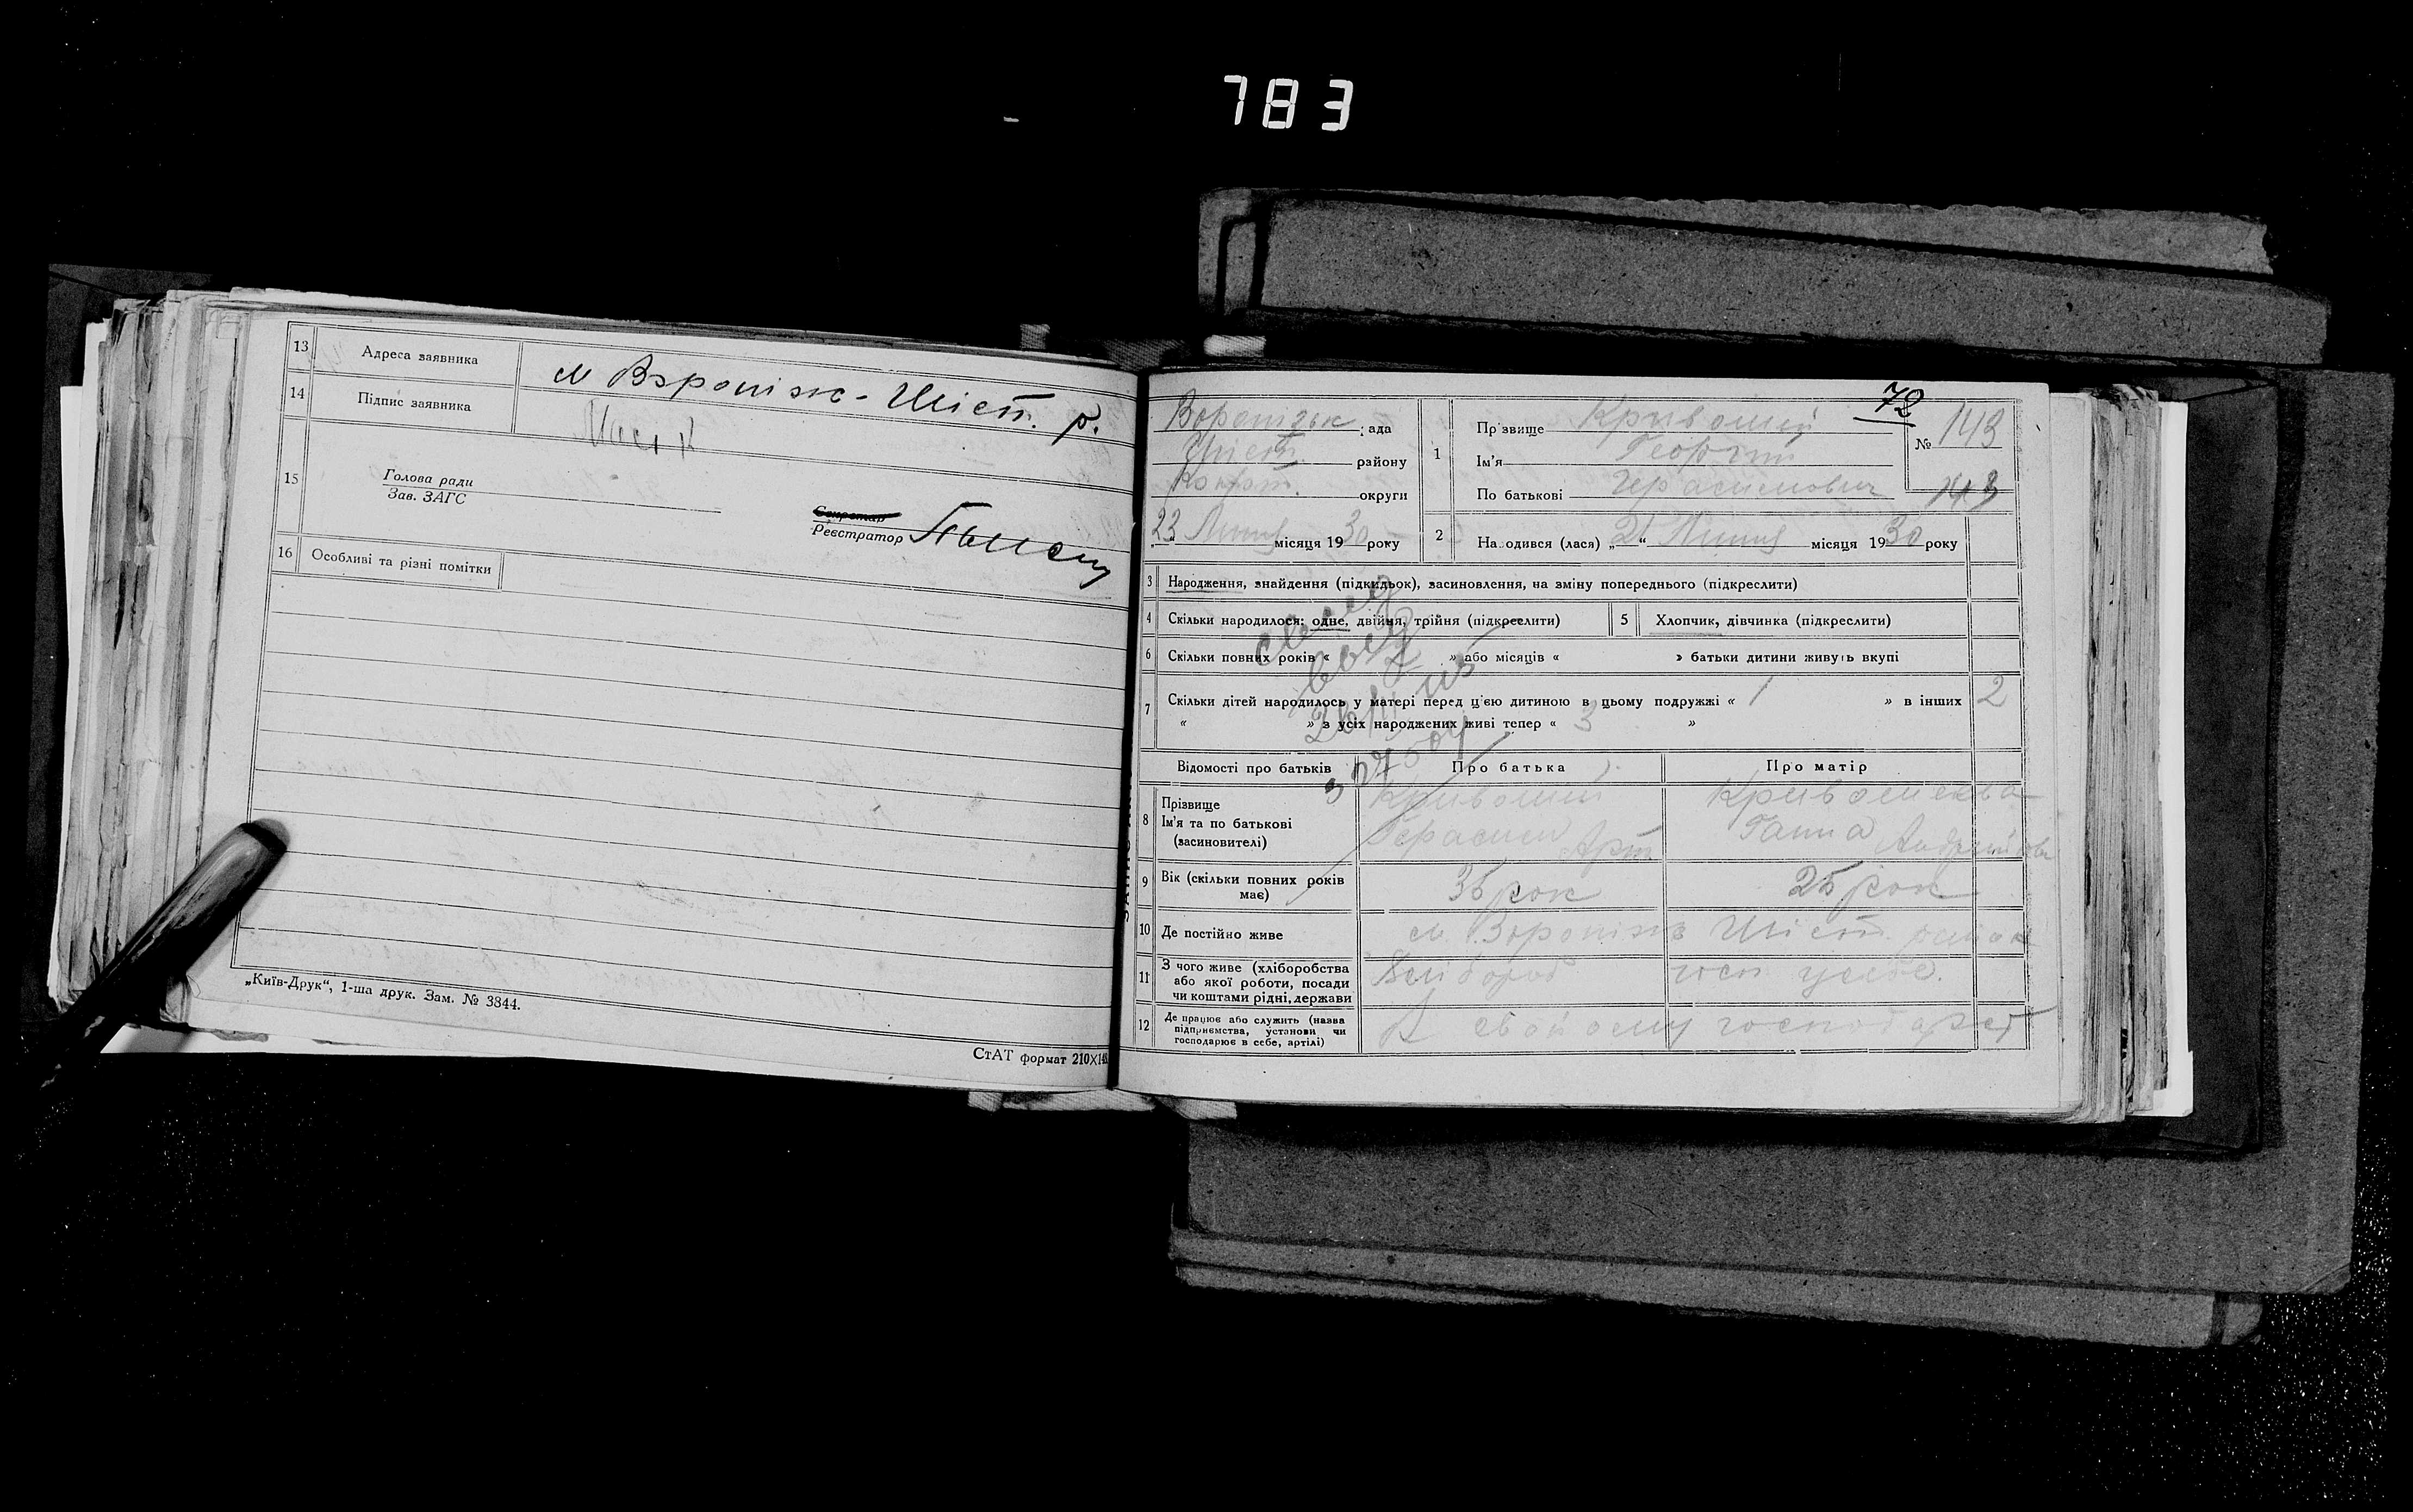 783
13 Адреса заявника м Вороніж - Шіст. р.
14 Підпис заявника
15 Голова ради
Зав. ЗАГС
Секретар
Реєстратор
16 Особливі та різні помітки
„Київ-Друк“, 1-ша друк. Зам. № 3844.
СтАТ формат 210×14
72
Вороніжськ рада
Шіст. району
Конот. округи
23 Липня місяця 1930 року
1 Прізвище Кривоший
Ім'я Георгій
По батькові Герасимович
№ 143
143
2 Народився (лася) „2“ Липня місяця 1930 року
3 Народження, знайдення (підкидьок), засиновлення, на зміну попереднього (підкреслити)
4 Скільки народилося: одне, двійня, трійня (підкреслити) 5 Хлопчик, дівчинка (підкреслити)
6 Скільки повних років « » або місяців « » батьки дитини живуть вкупі
7 Скільки дітей народилось у матері перед ц'єю дитиною в цьому подружжі « 1 » в інших 2
« » з усіх народжених живі тепер « 3 »
Відомості про батьків Про батька Про матір
8 Прізвище Кривоший
Ім'я та по батькові Герасим Арт Ганна
(засиновителі)
9 Вік (скільки повних років має) 35 рок 25 рок
10 Де постійно живе м Вороніж Шіст. район
11 З чого живе (хліборобства
або якої роботи, посади
чи коштами рідні, держави
12 Де працює або служить (назва
підприємства, установи чи
господарює в себе, артілі)
В свойому господарст